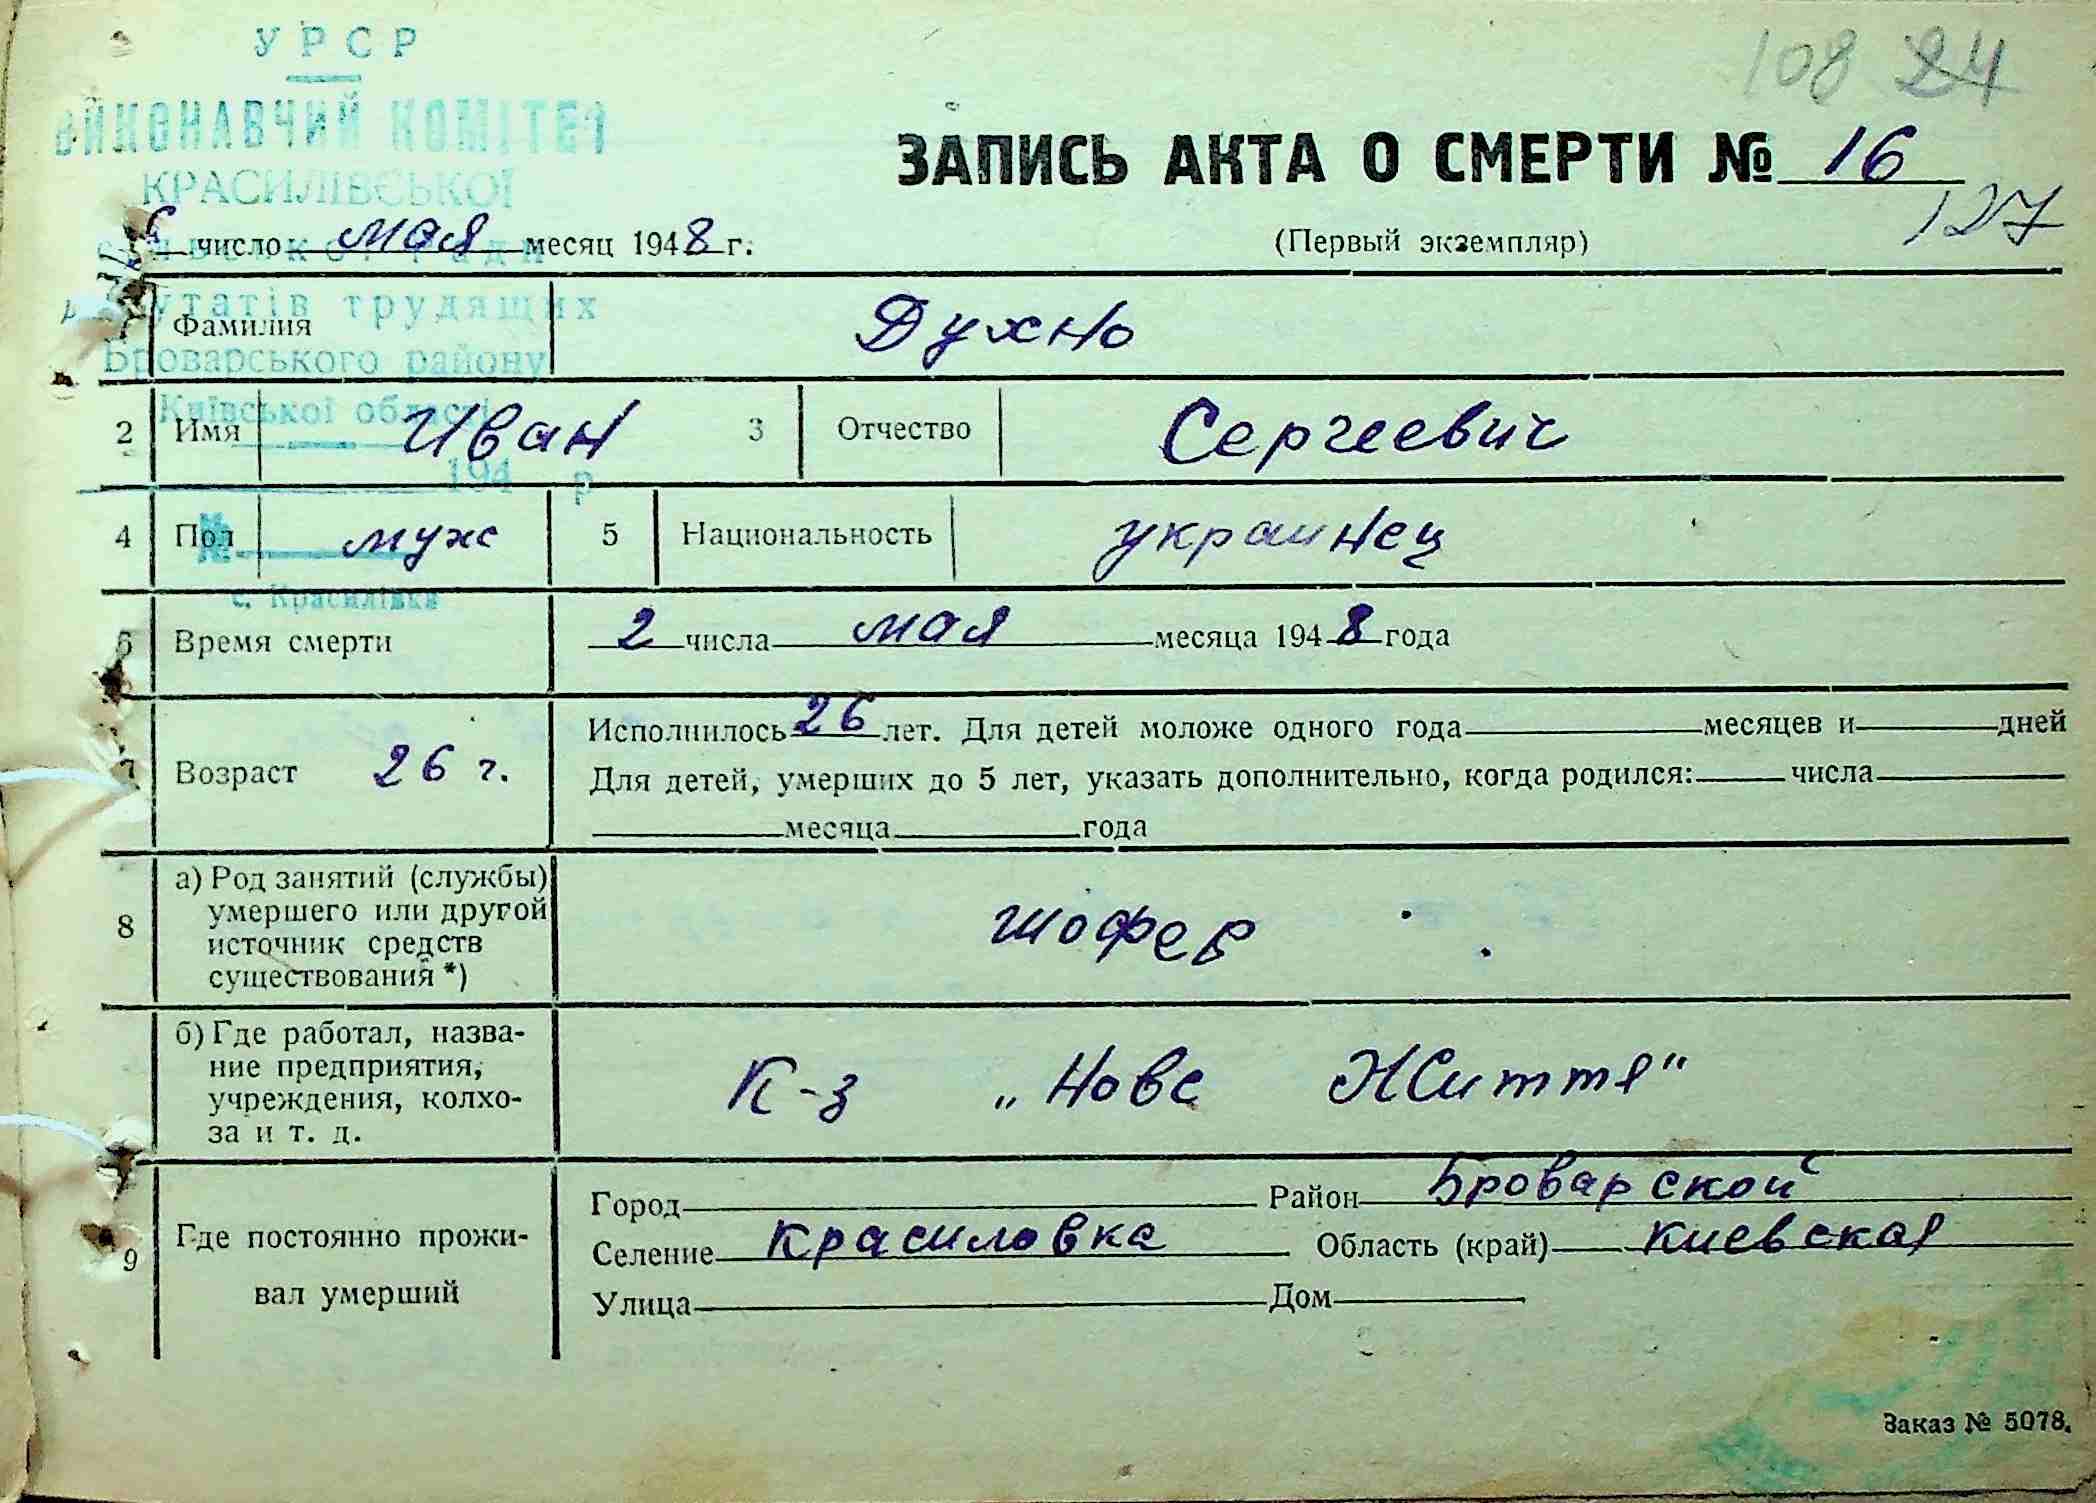 УРСР
ВИКОНАВЧИЙ КОМІТЕТ
КРАСИЛІВСЬКОЇ
депутатів трудящих
Броварського району
Київської області
194 р
№
с. Красилівка
108 24
ЗАПИСЬ АКТА О СМЕРТИ № 16
127
число мая месяц 1948 г.
(Первый экземпляр)
Фамилия Духно
2 Имя Иван 3 Отчество Сергеевич
4 Пол муж 5 Национальность украинец
6 Время смерти 2 числа мая месяца 1948 года
7 Возраст 26 г.
Исполнилось 26 лет. Для детей моложе одного года месяцев и дней
Для детей, умерших до 5 лет, указать дополнительно, когда родился: числа
месяца года
8 а) Род занятий (службы)
умершего или другой
источник средств
существования *)
шофер
б) Где работал, назва-
ние предприятия,
учреждения, колхо-
за и т. д.
К-з „Нове Життя"
9 Где постоянно прожи-
вал умерший
Город Район Броварской
Селение Красиловка Область (край) Киевская
Улица Дом
Заказ № 5078.